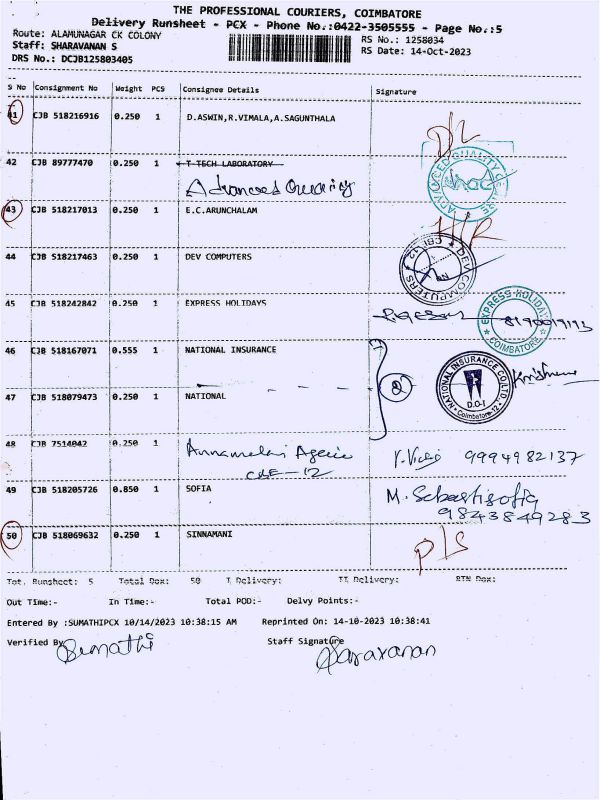 THE PROFESSIONAL COURIERS, COIMBATORE
Delivery Runsheet - PCX - Phone No.:0422-3505555 - Page No.:5
Route: ALAMUNAGAR CK COLONY
RS No.: 1258034
Staff: SHARAVANAN S
RS Date: 14-Oct-2023
DRS No.: DCJB125803405
S No Consignment No Weight PCS Consignee Details Signature
41 CJB 518216916 0.250 1 D.ASWIN,R.VIMALA,A.SAGUNTHALA D/L
42 CJB 89777470 0.250 1 T TECH LABORATORY
Advanced Quality
43 CJB 518217013 0.250 1 E.C.ARUNCHALAM
44 CJB 518217463 0.250 1 DEV COMPUTERS
DEV COMPUTERS CBE-12
45 CJB 518242842 0.250 1 EXPRESS HOLIDAYS
EXPRESS HOLIDAYS COIMBATORE
46 CJB 518167071 0.555 1 NATIONAL INSURANCE
2
NATIONAL INSURANCE CO.LTD D.O-I Coimbatore-12
Krishna
47 CJB 518079473 0.250 1 NATIONAL
48 CJB 7514042 0.250 1 Annamalai Agencie 9994982137
CBE-12
49 CJB 518205726 0.850 1 SOFIA M. Sebastisofia
9843849283
50 CJB 518069632 0.250 1 SINNAMANI P/S
Tot. Runsheet: 5 Total Dox: 50 I Delivery: II Delivery: RTN Dox:
Out Time:- In Time:- Total POD:- Delvy Points:-
Entered By :SUMATHIPCX 10/14/2023 10:38:15 AM Reprinted On: 14-10-2023 10:38:41
Verified By Sumathi Staff Signature Saravanan